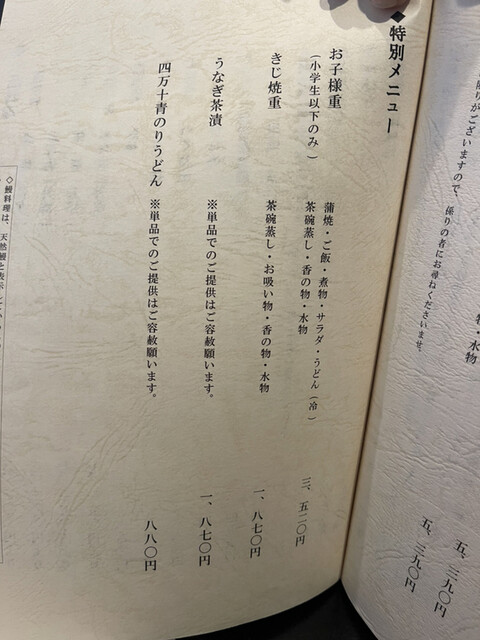 限りがございますので、係りの者にお尋ねくださいませ。
物・水物
五、三九〇円
五、三九〇円
◆特別メニュー
お子様重
（小学生以下のみ）
蒲焼・ご飯・煮物・サラダ・うどん（冷）
茶碗蒸し・香の物・水物
三、五二〇円
きじ焼重
茶碗蒸し・お吸い物・香の物・水物
一、八七〇円
うなぎ茶漬
※単品でのご提供はご容赦願います。
一、八七〇円
四万十青のりうどん
※単品でのご提供はご容赦願います。
八八〇円
◇鰻料理は、天然鰻と表示